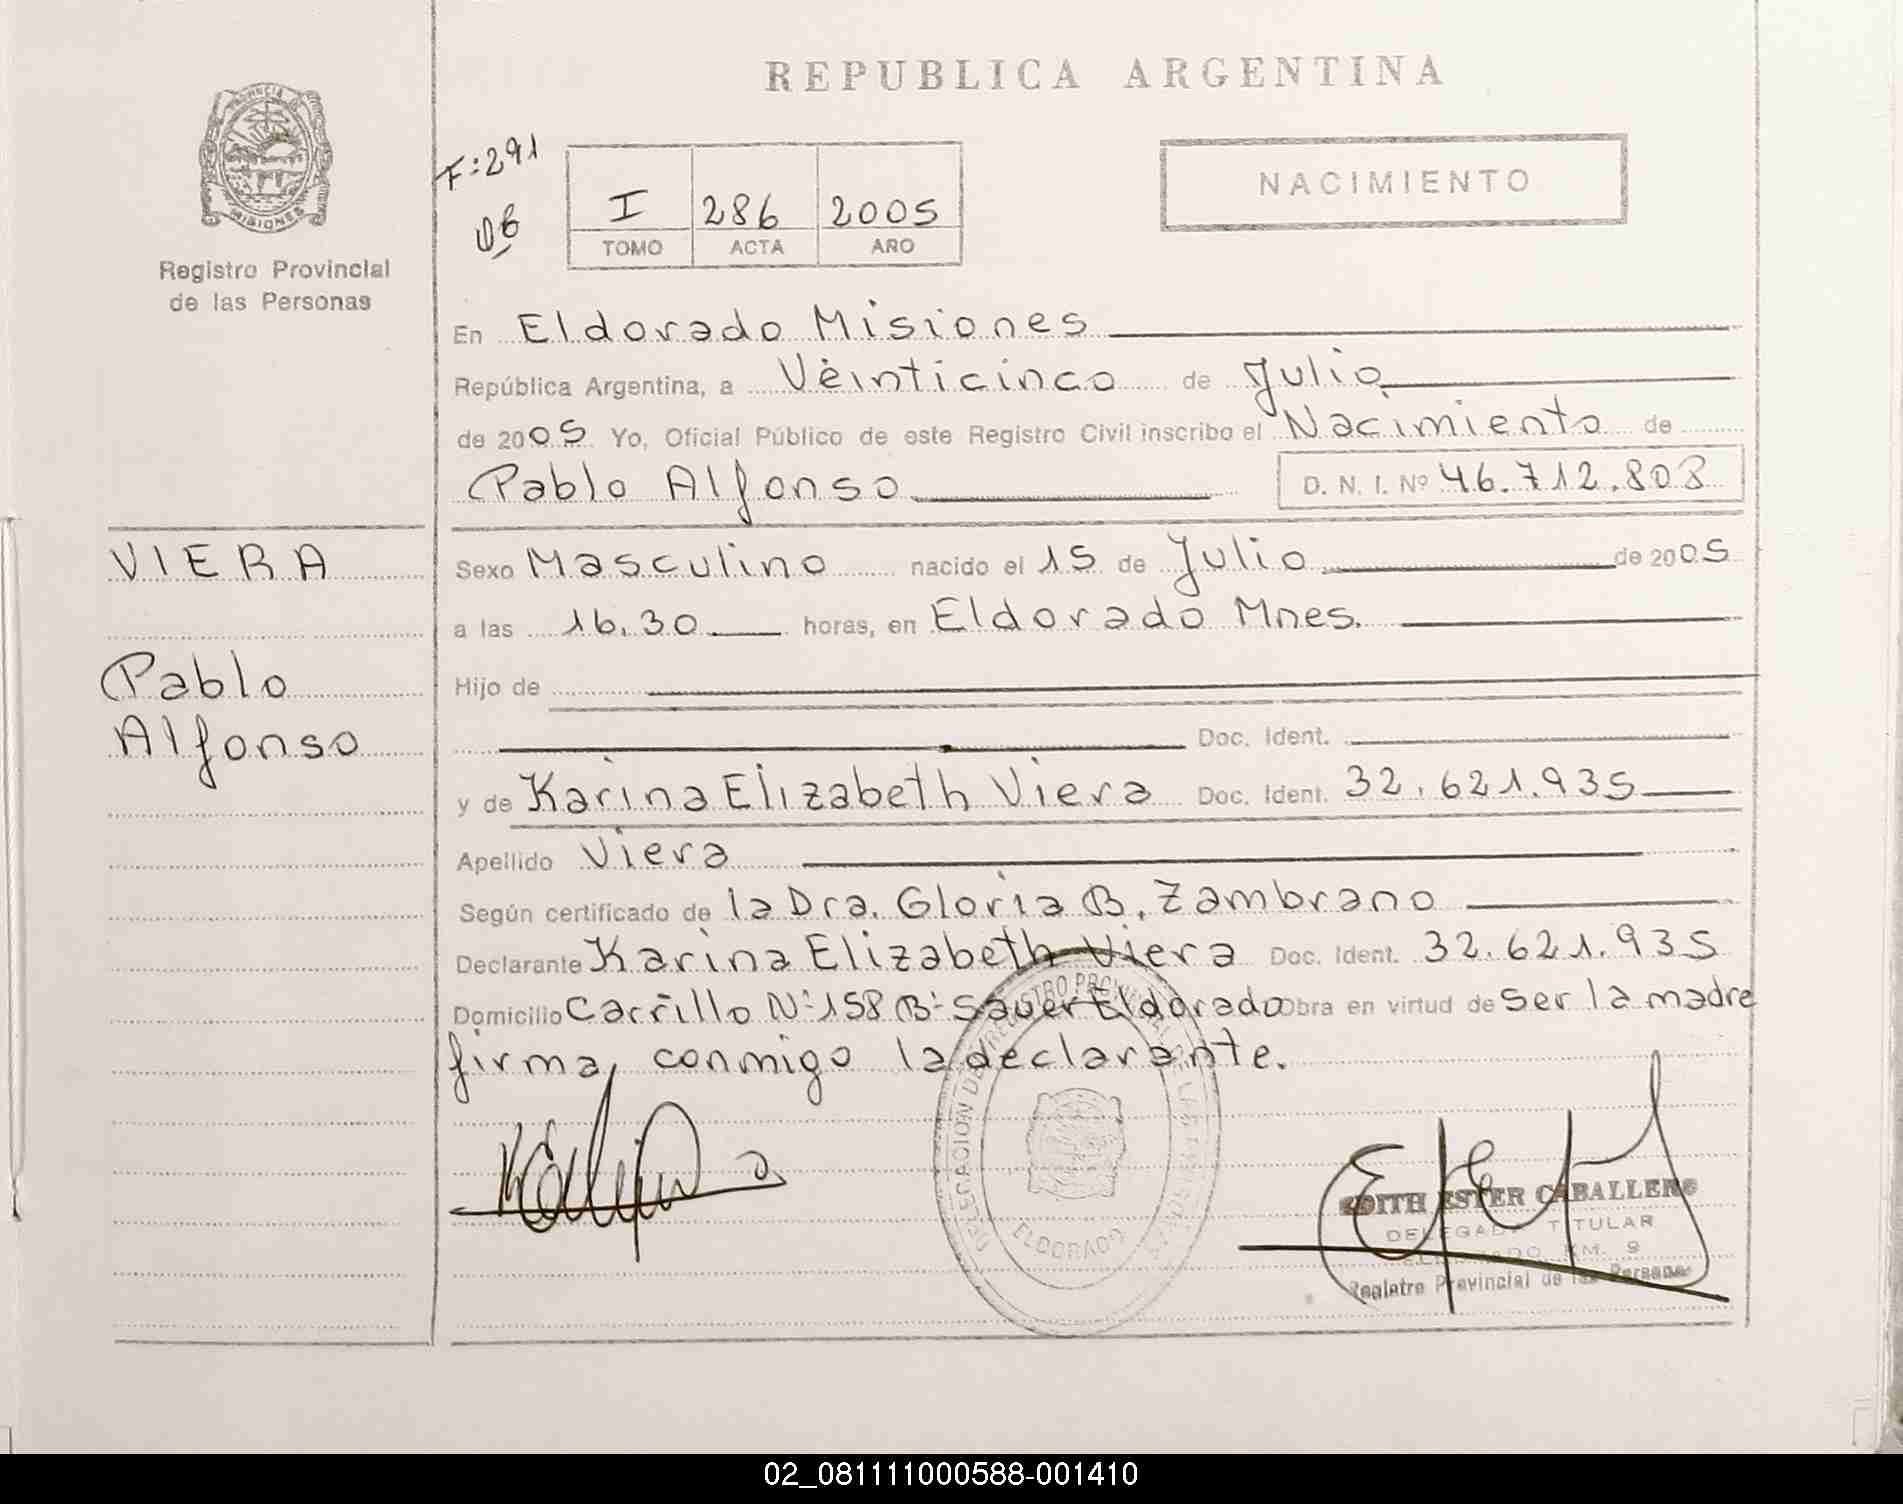 REPUBLICA ARGENTINA
PROVINCIA DE
MISIONES
Registro Provincial
de las Personas
F:291
I 286 2005
TOMO ACTA AÑO
NACIMIENTO
En Eldorado Misiones
República Argentina, a Veinticinco de Julio
de 2005 Yo, Oficial Público de este Registro Civil inscribo el Nacimiento de
Pablo Alfonso D. N. I. Nº 46.712.808
VIERA
Pablo
Alfonso
Sexo Masculino nacido el 15 de Julio de 2005
a las 16.30 horas, en Eldorado Mnes.
Hijo de
Doc. Ident.
y de Karina Elizabeth Viera Doc. Ident. 32.621.935
Apellido Viera
Según certificado de la Dra. Gloria B. Zambrano
Declarante Karina Elizabeth Viera Doc. Ident. 32.621.935
Domicilio Carrillo Nº 158 Bº Sauer Eldorado Obra en virtud de ser la madre
firma, conmigo la declarante.
ELDORADO
EDITH ESTER CABALLERO
DELEGADA TITULAR
ELDORADO KM. 9
Registro Provincial de las Personas
02_081111000588-001410